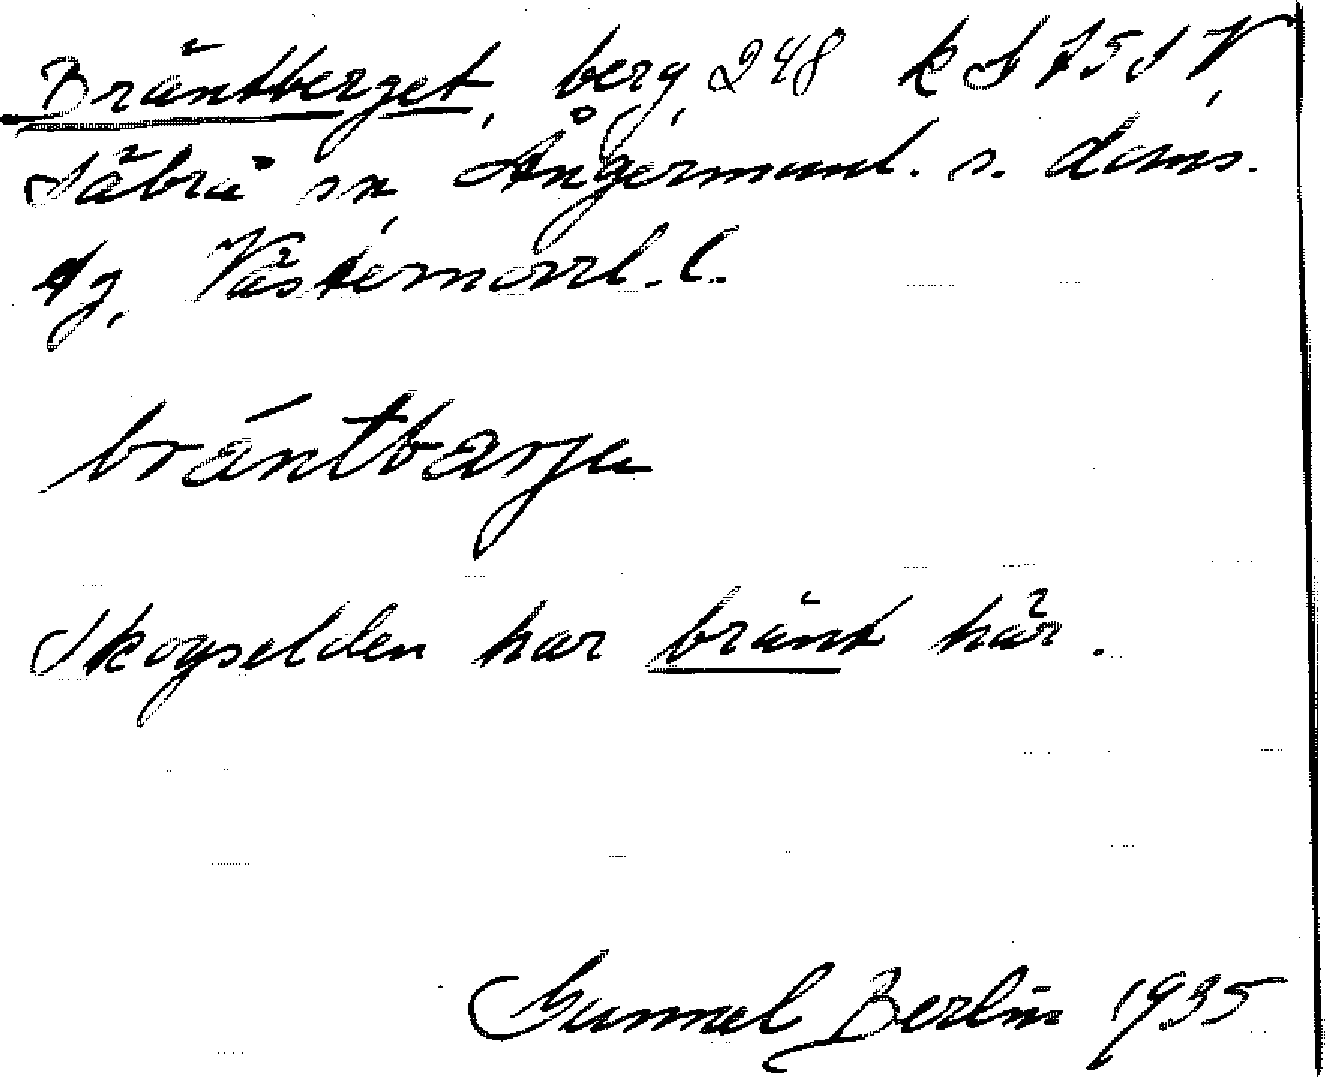 Bräntberget, berg, 248 k S 75 S V,
Säbrå sn, Ångermanl. s. doms.
Västernorrl. l.
bräntbarje
Skogselden har bränt här.
Gunnel Berlin 1935